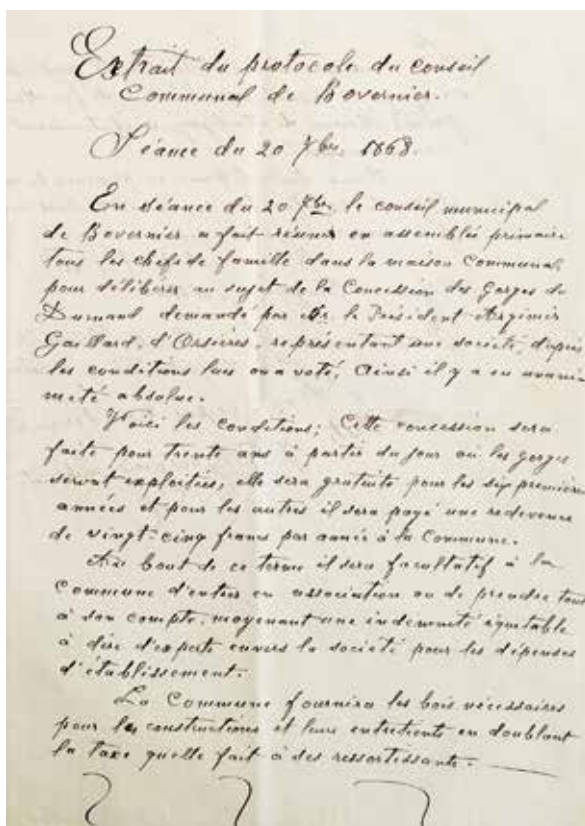 Extrait du protocole du conseil
Communal de Bovernier.
Séance du 20 7bre 1868.
En séance du 20 7bre le conseil municipal
de Bovernier a fait réunir en assemblée primaire
tous les chefs de famille dans la maison Communal,
pour délibérer au sujet de la Concession des Gorges du
Durnand demandé par Mr. le Président
Gaillard, d'Orsières, représentant une société, d'après
les conditions lues on a voté, Ainsi il y a eu unani
mité absolue.
Voici les conditions; Cette concession sera
faite pour trente ans à partir du jour où les gorges
seront exploitées, elle sera gratuite pour les six premières
années et pour les autres il sera payé une redevence
de vingt-cinq francs par année à la Commune.
Au bout de ce terme il sera facultatif à la
Commune d'entrer en association ou de prendre tout
à son compte, moyenant une indemnité équitable
à dire d'experts envers la société pour les dépenses
d'établissement.
La Commune fournira les bois nécessaires
pour les constructions et leurs entretients en doublant
la taxe quelle fait à ses ressortissants.